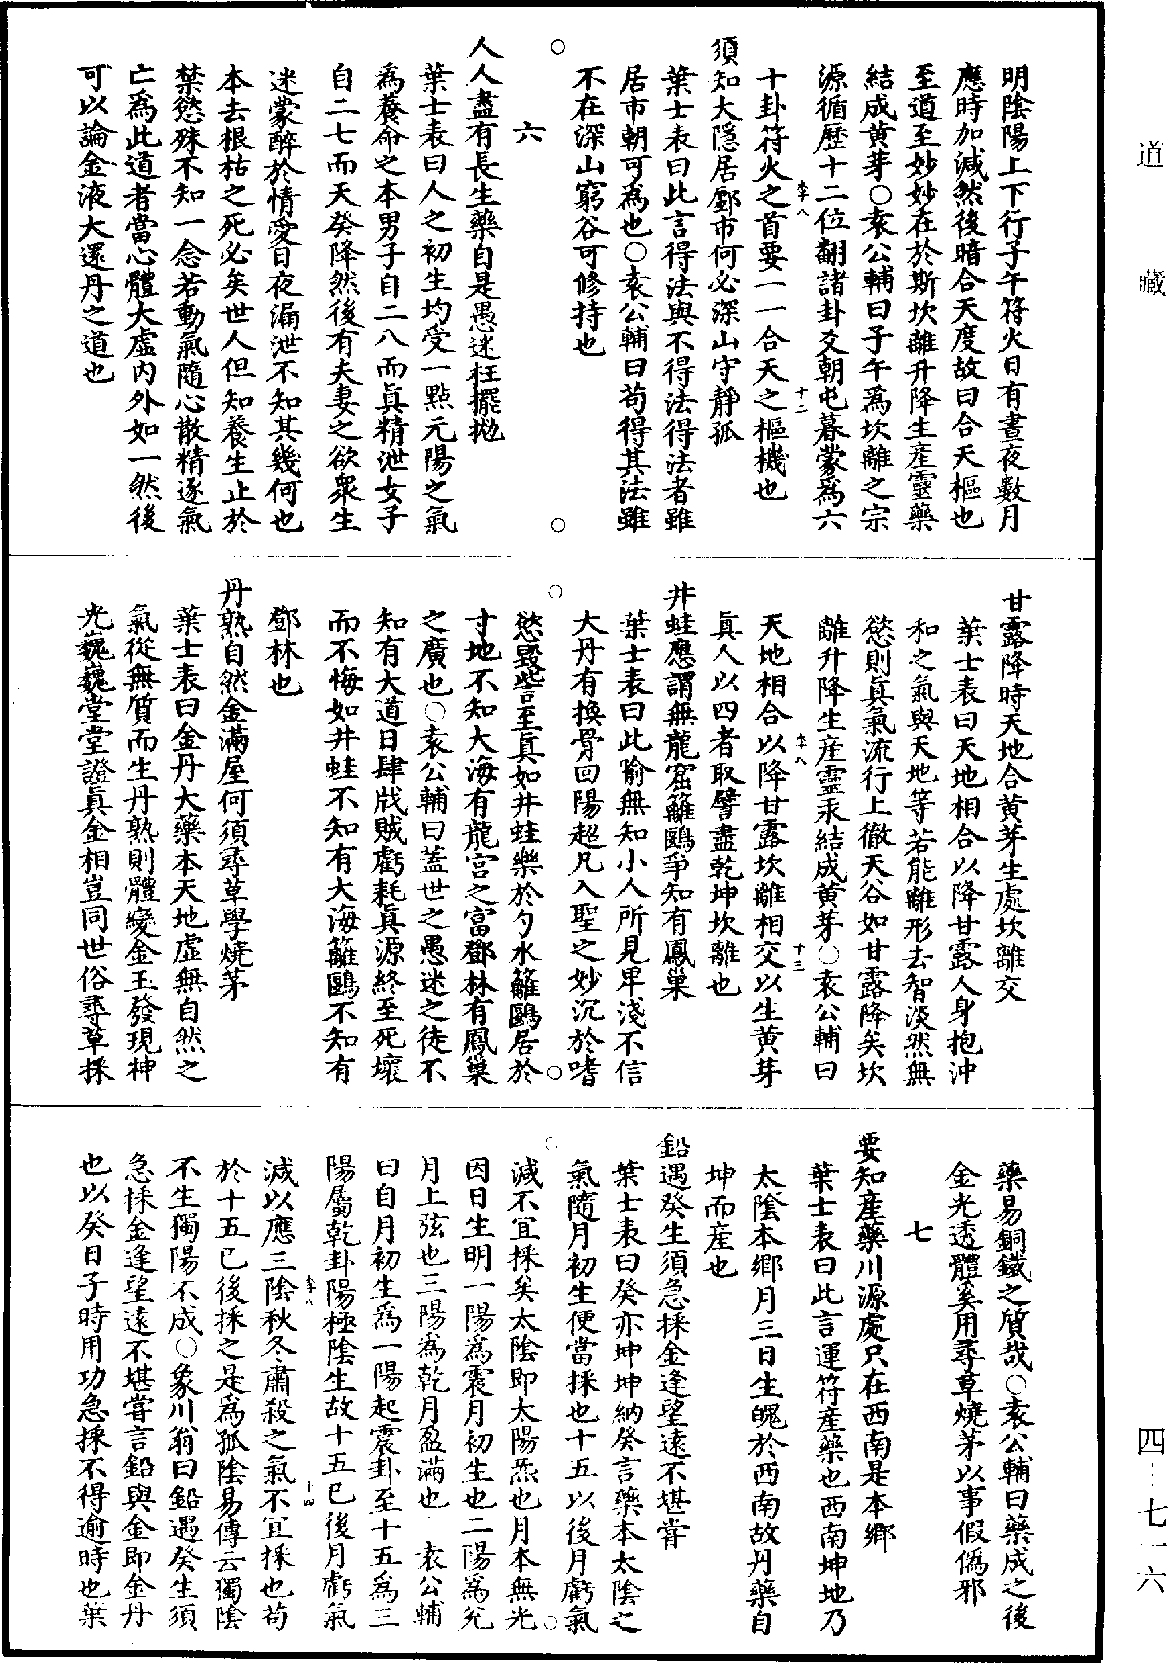 明陰陽上下行子午符火日有晝夜數月
應時加減然後暗合天度故曰合天樞也
至道至妙妙在於斯坎離升降生產靈藥
結成黃芽○袁公輔曰子午爲坎離之宗
源循歷十二位翻諸卦爻朝屯暮蒙爲六
十卦符火之首要一一合天之樞機也
李八
十二
須知大隱居鄽市何必深山守靜孤
葉士表曰此言得法與不得法得法者雖
居市朝可爲也○袁公輔曰苟得其法雖
不在深山窮谷可修持也
○
○
六
人人盡有長生藥自是愚迷枉擺拋
葉士表曰人之初生均受一點元陽之氣
爲養命之本男子自二八而眞精泄女子
自二七而天癸降然後有夫妻之欲衆生
迷蒙醉於情愛日夜漏泄不知其幾何也
本去根枯之死必矣世人但知養生止於
禁慾殊不知一念若動氣隨心散精逐氣
亡爲此道者當心體大虛內外如一然後
可以論金液大還丹之道也
甘露降時天地合黃芽生處坎離交
葉士表曰天地相合以降甘露人身抱沖
和之氣與天地等若能離形去智淡然無
慾則眞氣流行上徹天谷如甘露降矣坎
離升降生產靈汞結成黃芽○袁公輔曰
天地相合以降甘露坎離相交以生黃芽
李八
十三
眞人以四者取譬盡乾坤坎離也
井蛙應謂無龍窟籬鷃爭知有鳳巢
葉士表曰此喻無知小人所見卑淺不信
大丹有換骨回陽超凡入聖之妙沉於嗜
○
○
慾毀訾至眞如井蛙樂於勺水籬鷃居於
寸地不知大海有龍宮之富鄧林有鳳巢
之廣也○袁公輔曰蓋世之愚迷之徒不
知有大道日肆戕賊虧耗眞源終至死壞
而不悔如井蛙不知有大海籬鷃不知有
鄧林也
丹熟自然金滿屋何須尋草學燒茅
葉士表曰金丹大藥本天地虛無自然之
氣從無質而生丹熟則體變金玉發現神
光巍巍堂堂證眞金相豈同世俗尋草採
藥易銅鐵之質哉○袁公輔曰藥成之後
金光透體奚用尋草燒茅以事假僞邪
七
要知產藥川源處只在西南是本鄉
葉士表曰此言運符產藥也西南坤地乃
太陰本鄉月三日生魄於西南故丹藥自
坤而產也
鉛遇癸生須急採金逢望遠不堪嘗
葉士表曰癸亦坤坤納癸言藥本太陰之
氣隨月初生便當採也十五以後月虧氣
○
○
減不宜採矣太陰即太陽炁也月本無光
因日生明一陽爲震月初生也二陽爲兌
月上弦也三陽爲乾月盈滿也 袁公輔
曰自月初生爲一陽起震卦至十五爲三
陽屬乾卦陽極陰生故十五已後月虧氣
減以應三陰秋冬肅殺之氣不宜採也苟
李八
十四
於十五已後採之是爲孤陰易傳云獨陰
不生獨陽不成○象川翁曰鉛遇癸生須
急採金逢望遠不堪嘗言鉛與金即金丹
也以癸日子時用功急採不得逾時也葉
道藏
四-七一六